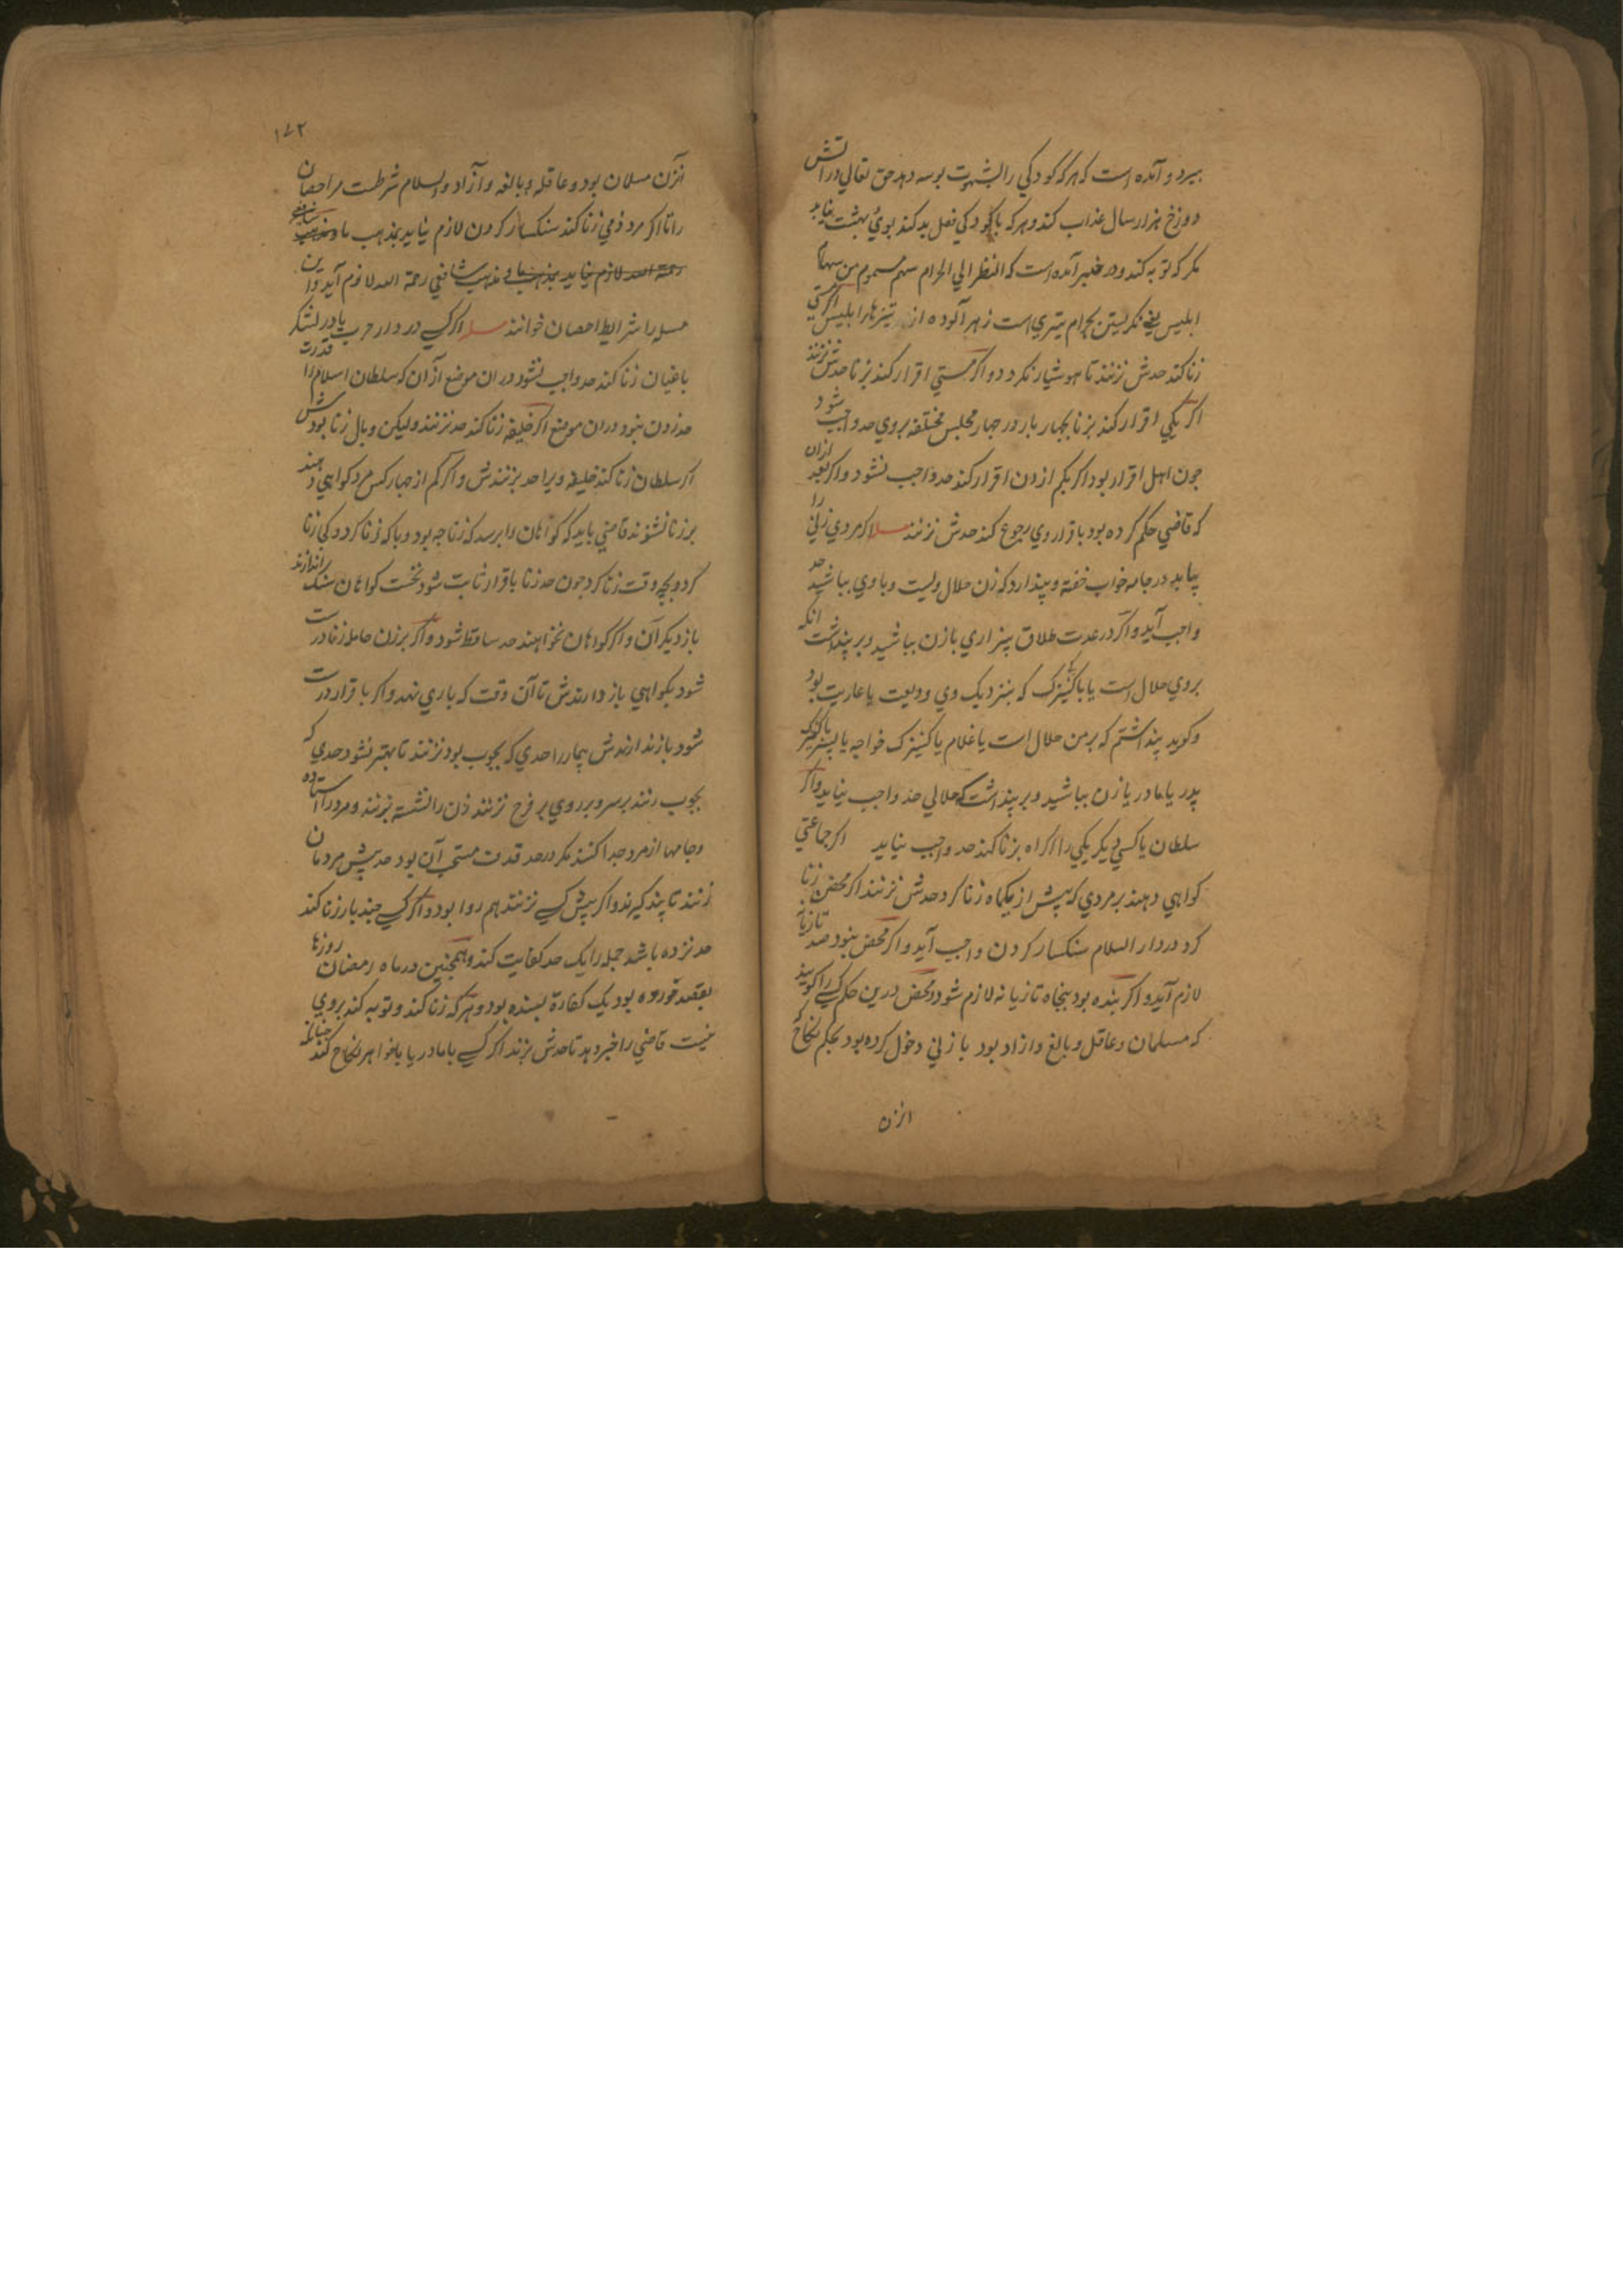 بمیرد و آمده است که هر که کودکی را بشهوت بوسه دهد حق تعالی در آتش
دوزخ هزار سال عذاب کند و هر که با کودکی فعل بد کند بوی بهشت نیابد
مکر که توبه کند و در خبر آمده است که النظر الی الحرام سهم مسموم من سهام
ابلیس یعنی نکریستن بحرام تیری است زهر آلوده از تیرهاء ابلیس اکر کسی
زنا کند حدش نزنند تا هوشیار نکردد و اکر مستی اقرار کند بزنا حدش نزنند
اکر یکی اقرار کند بزنا بجهار بار در جهار مجلس مختلفه بروی حد واجب شود
جون اهل اقرار بود اکر بکم ازین اقرار کند حد واجب نشود و اکر بعد ازان
که قاضی حکم کرده بود باقرار وی رجوع کند حدش نزنند مسله اکر مردی زنی را
بیابد در جامه خواب خفته و پندارد که زن حلال ویست و با وی بباشد حد
واجب آید و اکر در عدت طلاق بیزاری با زن بباشید و بر پنداشت آنکه
بروی حلال است یا با کنیزک که بنزدیک وی ودیعت یا عاریت بود
و کوید پنداشتم که بر من حلال است یا غلام با کنیزک خواجه یا پسر با کنیزک
پدر یا مادر یا زن بباشید و بر پنداشت که حلالی حد واجب نیاید و اکر
سلطان یا کسی دیکر یکی را اکراه بزنا کند حد واجب نیاید اکر جماعتی
کواهی دهند بر مردی که پیش از یکماه زنا کرد حدش نزنند اکر محصن زنا
کرد در دار السلام سنکسار کردن واجب آید و اکر محصن نبود صد تازیانه
لازم آید و اکر بنده بود پنجاه تازیانه لازم شود و محصن درین حکم کسی را کویند
که مسلمان و عاقل و بالغ و ازاد بود با زنی دخول کرده بود بحکم نکاح
انزن
۱۷۲
انزن مسلمان بود و عاقله و بالغه و آزاد و السلام شرطست مر احصان
را تا اکر مرد ذمی زنا کند سنکسار کردن لازم نیاید بمذهب ما و بمذهب شافعی
رحمة الله لازم نیاید بمذهب ما و مذهب شافعی رحمة الله لازم آید و این
مسله را شرایط احصان خوانند مسله اکر کسی در دار حرب یا در لشکر
باغیان زنا کند حد واجب نشود دران موضع از آن که سلطان اسلام را قدرت
حد زدن نبود دران موضع اکر خلیفه زنا کند حد نزنند ولیکن وبال زنا بودش
اکر سلطان زنا کند خلیفه ویرا حد بزنندش و اکر کم از جهار کس مرد کواهی دهند
بر زنا نشنوند قاضی باید که کواهان را برسد که زنا جه بود و با که زنا کرد و کی زنا
کرد و بجه وقت زنا کرد جون حد زنا باقرار ثابت شود نخست کواهان سنک اندازند
باز دیکران و اکر کواهان نخواهند حد ساقط شود و اکر بر زن حامله زنا درست
شود بکواهی باز دارندش تا آن وقت که باری نهد و اکر باقرار درست
شود باز ندارندش بیمار را حدی که بجوب بود نزنند تا بهتر نشود حدی که
بجوب زنند بر سر و بر روی بر فرج نزنند زن را نشسته بزنند و مرد را استاده
و جامها از مرد جدا کنند مکر در حد قذف مستحب آن بود حد پیش مردمان
زنند تا پند کیرند و اکر پیش کسی نزنند هم روا بود و اکر کسی جند بار زنا کند
حد نزده باشد جمله را یک حد کفایت کند و همجنین در ماه رمضان روزها
بقصد خورده بود یک کفارة بسنده بود و هر که زنا کند و توبه کند بروی
نیست قاضی را خبر دهد تا حدش بزند اکر کسی با مادر یا با خواهر نکاح کند جنانکه